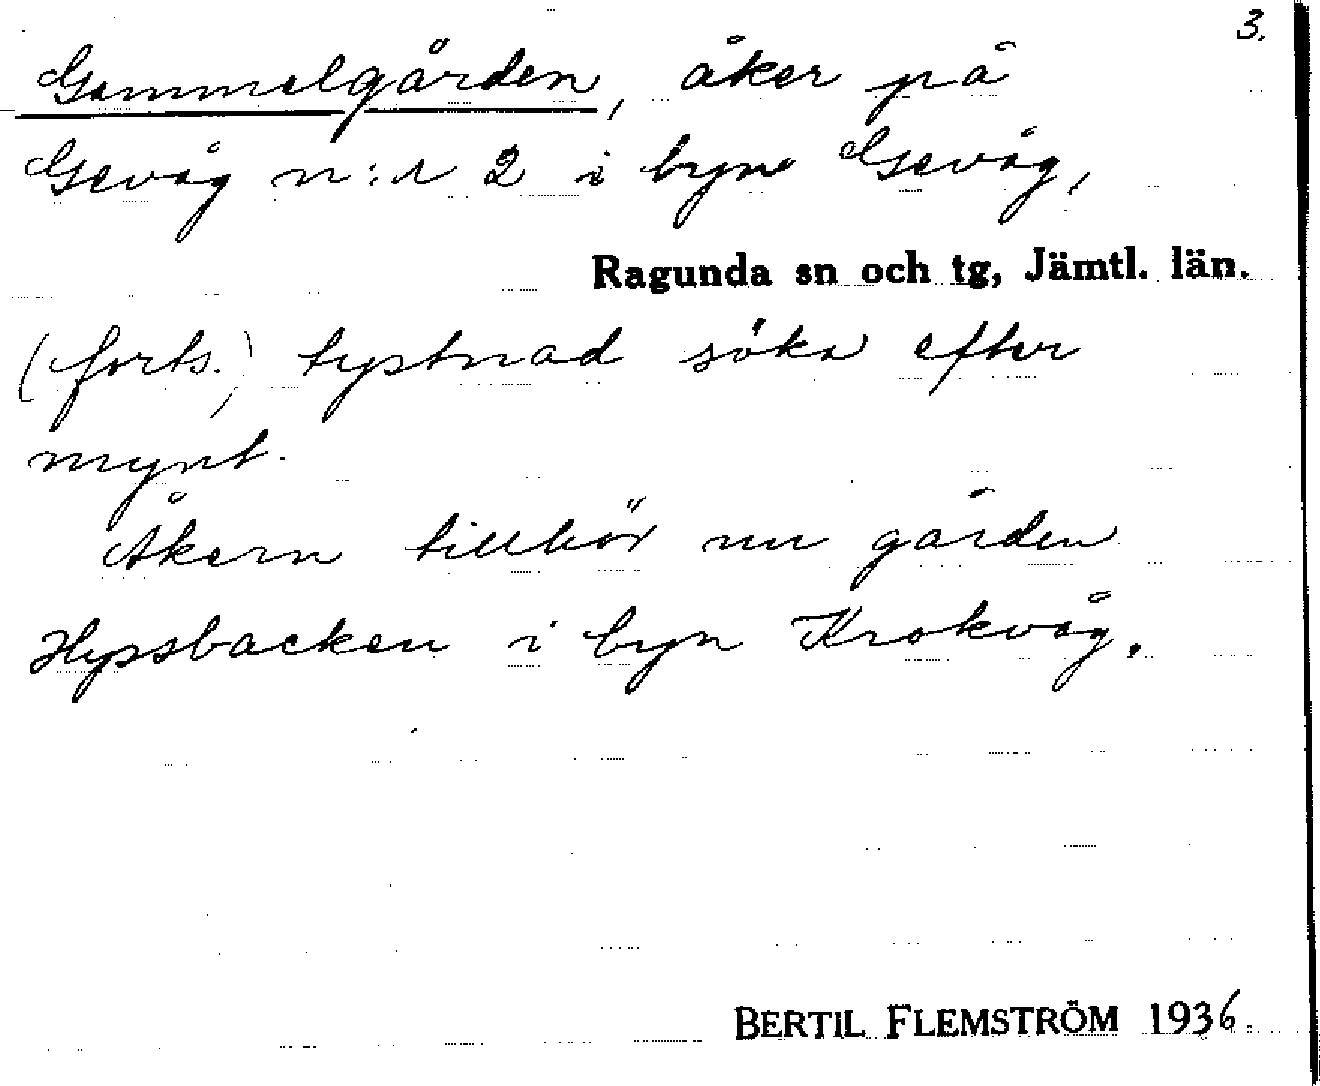 3.
Gammelgården, åker på
Gevåg n:r 2 i byn Gevåg,
Ragunda sn och tg, Jämtl. län.
(forts.) tystnad söka efter
mynt.
Åkern tillhör nu gården
Hyssbacken i byn Krokvåg.
BERTIL FLEMSTRÖM 1936.